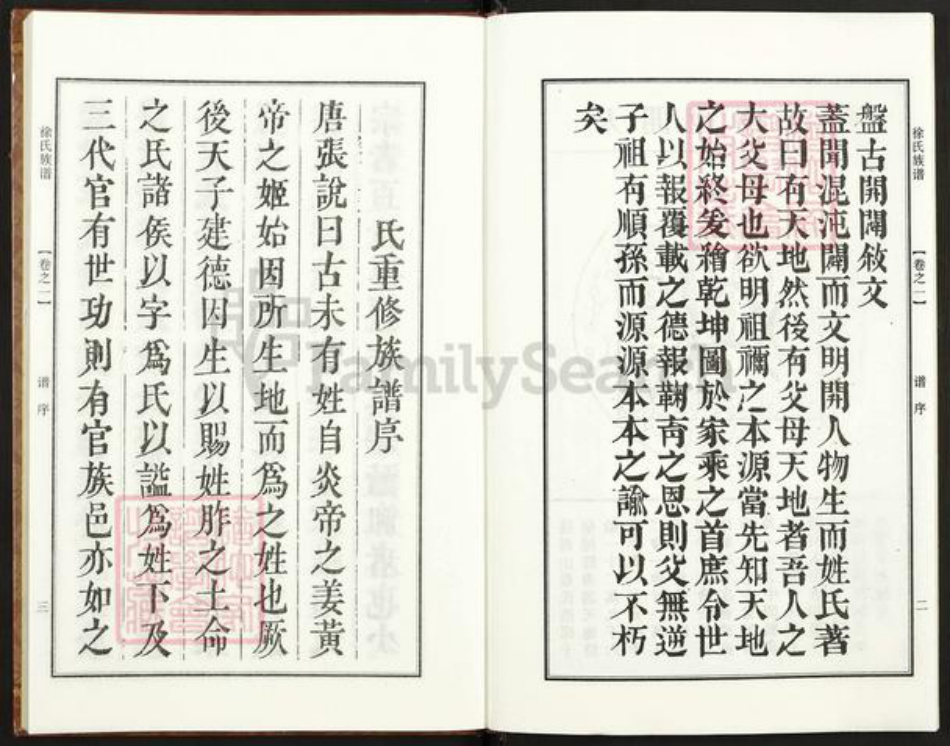 徐氏族谱
【卷之一】
谱序
二
盤古開闢敘文
蓋聞混沌闢而文明開人物生而姓氏著
故曰有天地然後有父母天地者吾人之
大父母也欲明祖禰之本源當先知天地
之始終爰繪乾坤圖於家乘之首庶令世
人以報覆載之德報鞠育之恩則父無逆
子祖有順孫而源源本本之諭可以不朽
矣
氏重修族譜序
唐張說曰古未有姓自炎帝之姜黃
帝之姬始因所生地而爲之姓也厥
後天子建德因生以賜姓胙之土命
之氏諸侯以字爲氏以謚爲姓下及
三代官有世功則有官族邑亦如之
徐氏族谱
【卷之一】
谱序
三
FamilySearch